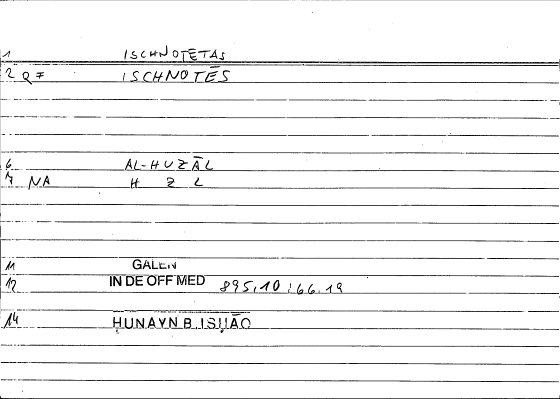 1 ISCHNOTĒTAS
2 QF ISCHNOTĒS
6 AL-HUZĀL
7 NA H Z L
11 GALEN
12 IN DE OFF MED 895,10:66.19
14 ḤUNAYN B. ISḤĀQ